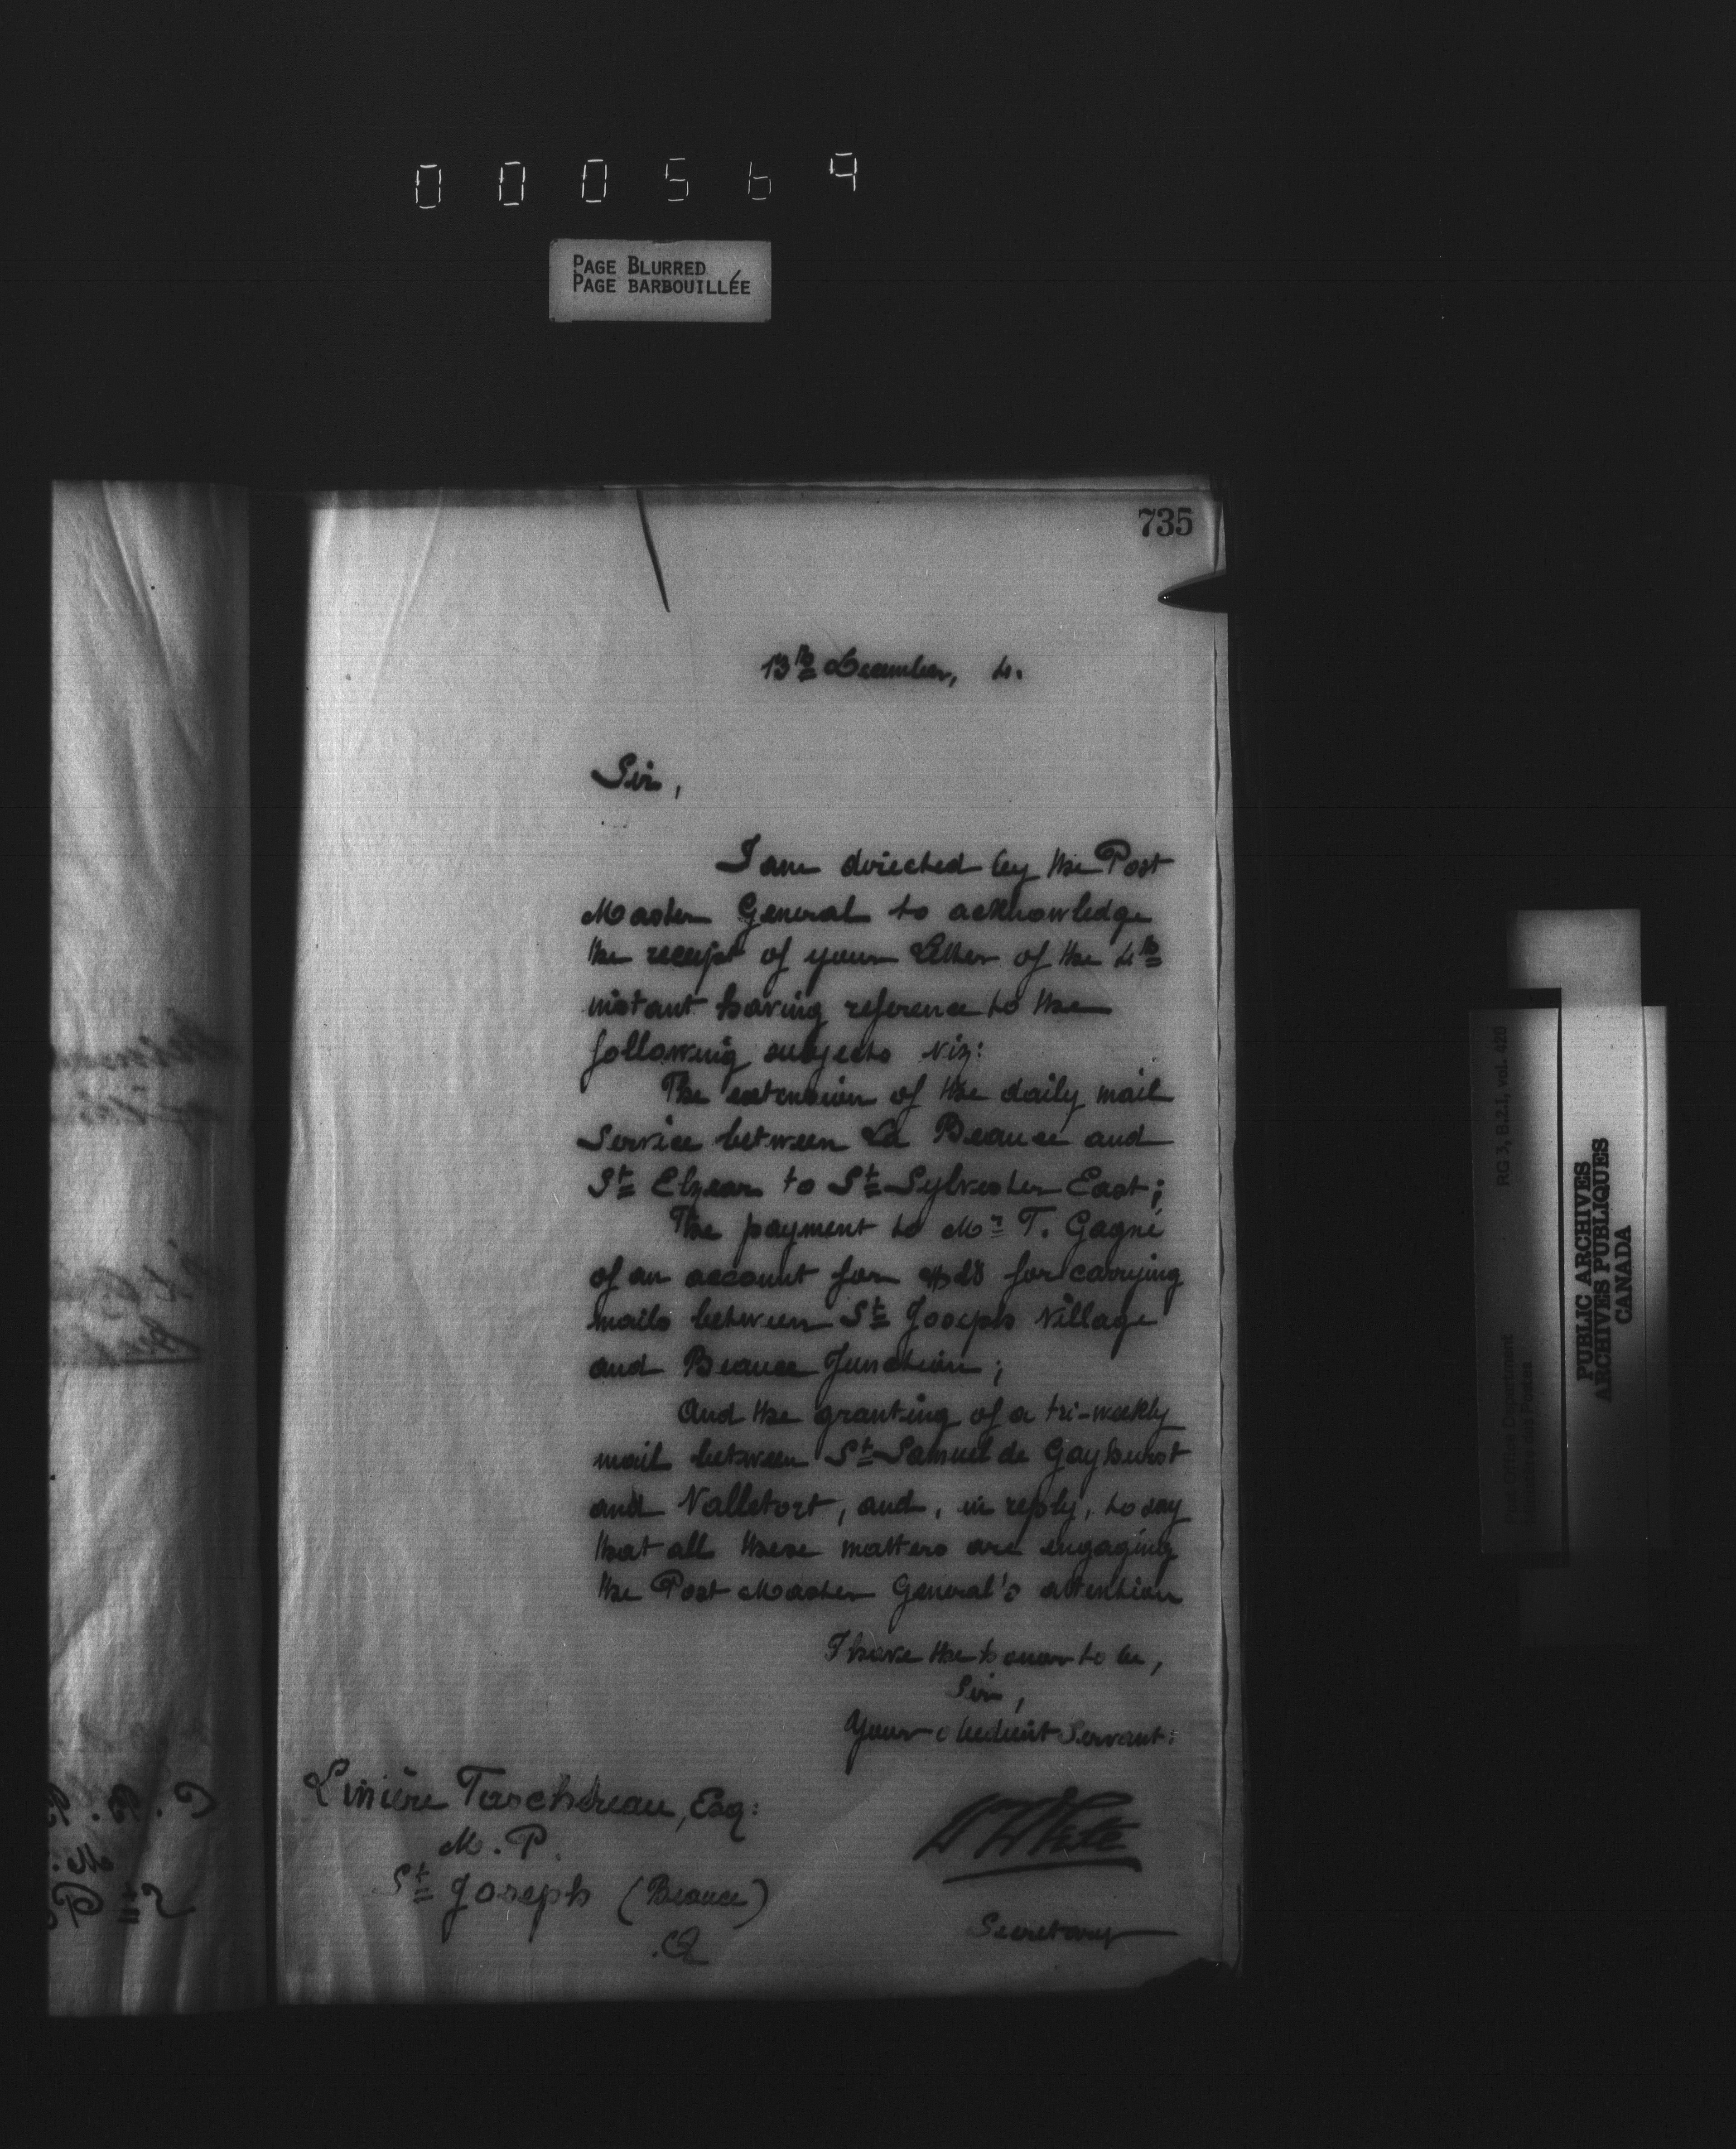 000569
PAGE BLURRED
PAGE BARBOUILLÉE
735
13th December, 4.
Sir,
I am directed by the Post
Master General to acknowledge
the receipt of your letter of the 4th
instant having reference to the
following subjects viz:
The extension of the daily mail
Service between La Beauce and
St Elzear to St Sylvester East;
The payment to Mr T. Gagné
of an account for for carrying
mails between St Joseph Village
and Beauce Junction;
And the granting of a tri-weekly
mail between St Samuel de Gayhurst
and Valletort, and, in reply, to say
that all these matters are engaging
the Post Master General's attention
I have the honour to be,
Sir,
Your obedient Servant:
White
Secretary
Linière Taschereau, Esq:
M. P.
St Joseph (Beauce)
.Q
RG 3, B.2.1, vol. 420
Post Office Department
Ministère des Postes
PUBLIC ARCHIVES
ARCHIVES PUBLIQUES
CANADA